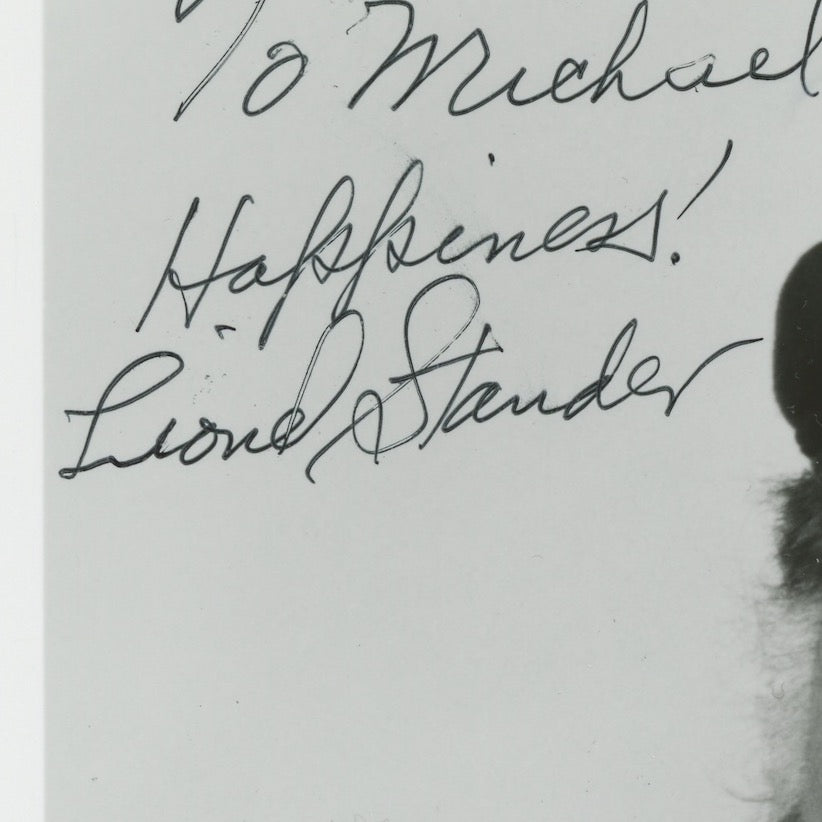 To Michael
Happiness!
Lionel Stander